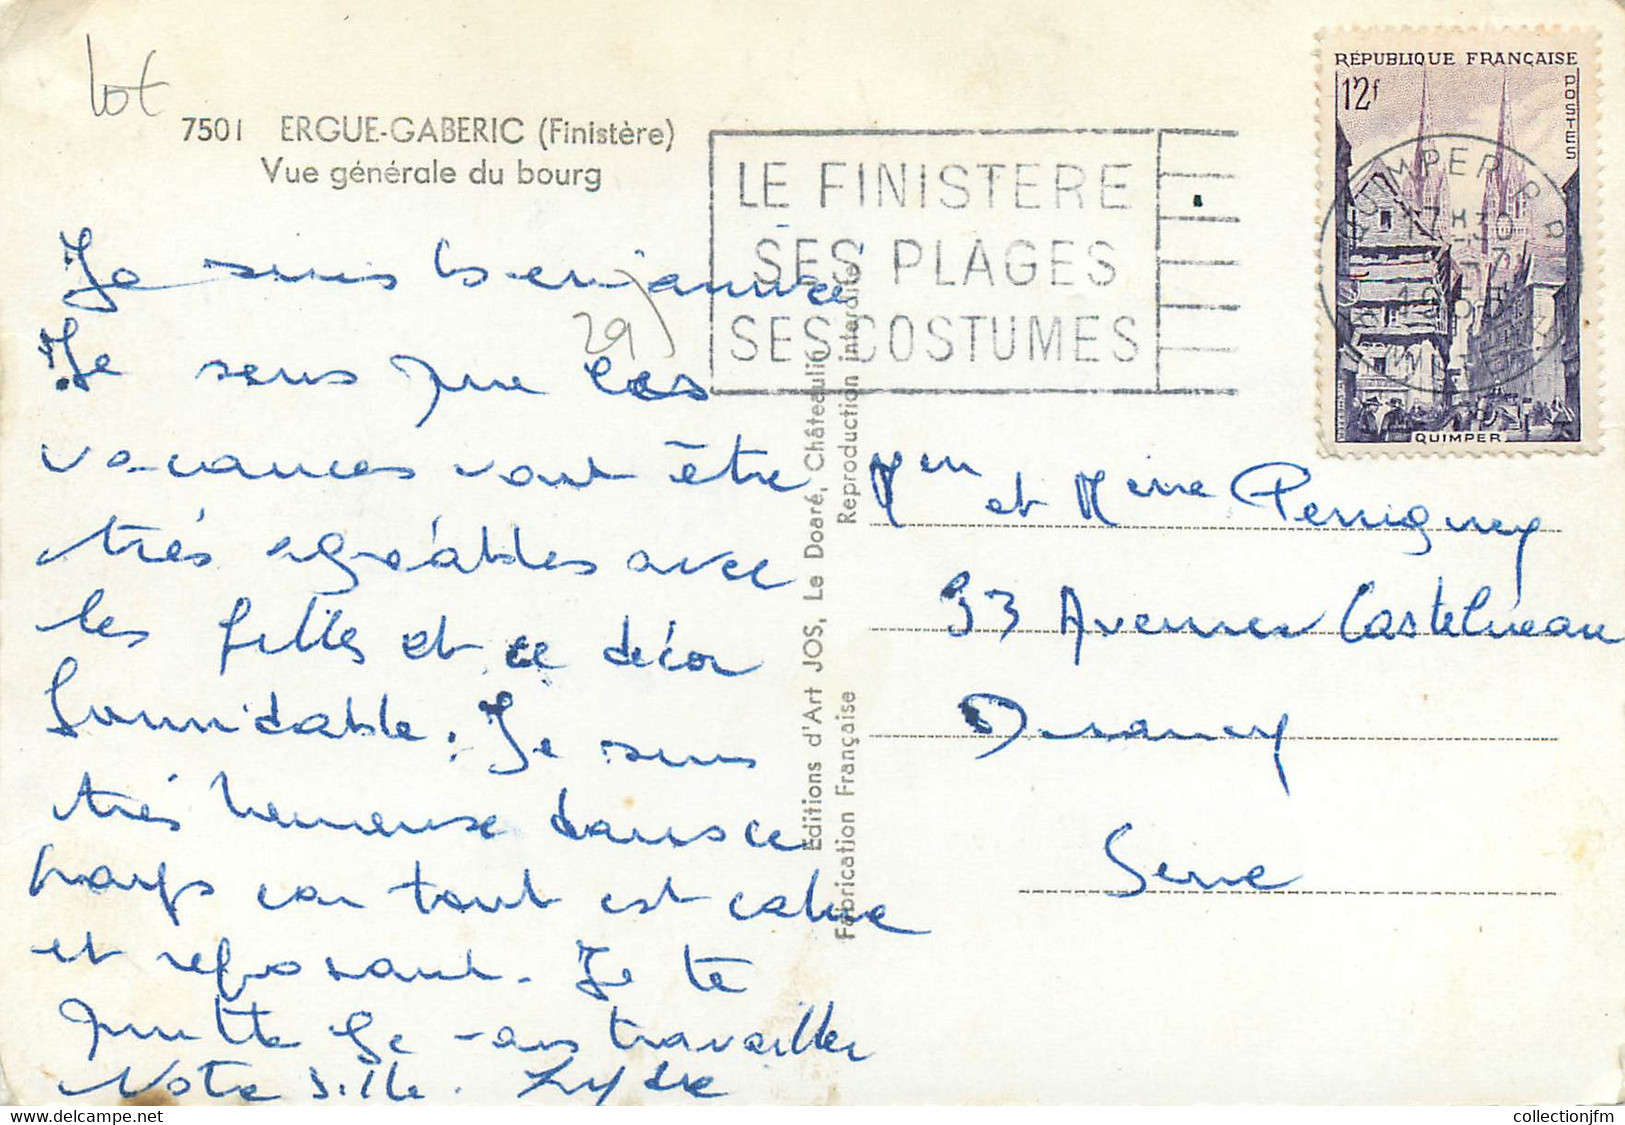 lot
7501 ERGUE-GABERIC (Finistère)
Vue générale du bourg
LE FINISTERE
SES PLAGES
SES COSTUMES
RÉPUBLIQUE FRANÇAISE
12f
POSTES
QUIMPER R.P.
17H30
1955
QUIMPER
Je suis bien arrivée
29)
Je sens que les
vacances vont être
très agréables avec
les filles et ce décor
formidable. Je suis
très heureuse dans ce
pays car tout est calme
et reposant. Je te
quitte je vais travailler
Notre fille. Lydie
Editions d'Art JOS, Le Doaré, Châteaulin
Reproduction interdite
Fabrication Française
Mr et Mme Perrigney
93 Avenue
Drancy
Seine
collectionjfm